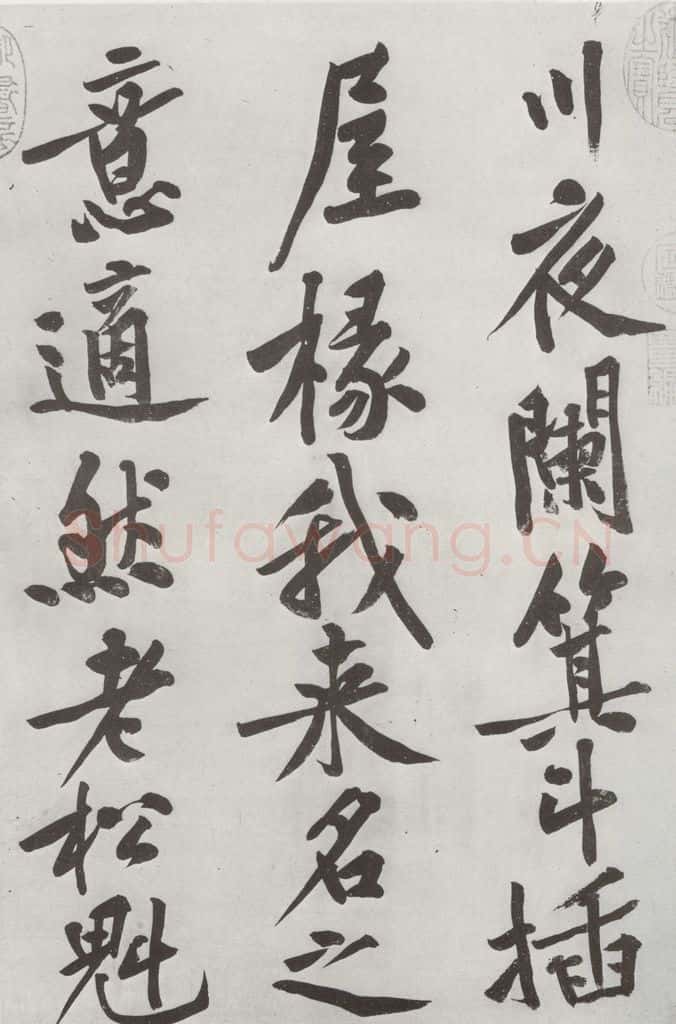 川夜阑箕斗插
屋椽我来名之
意適然老松魁
Shufawang.CN